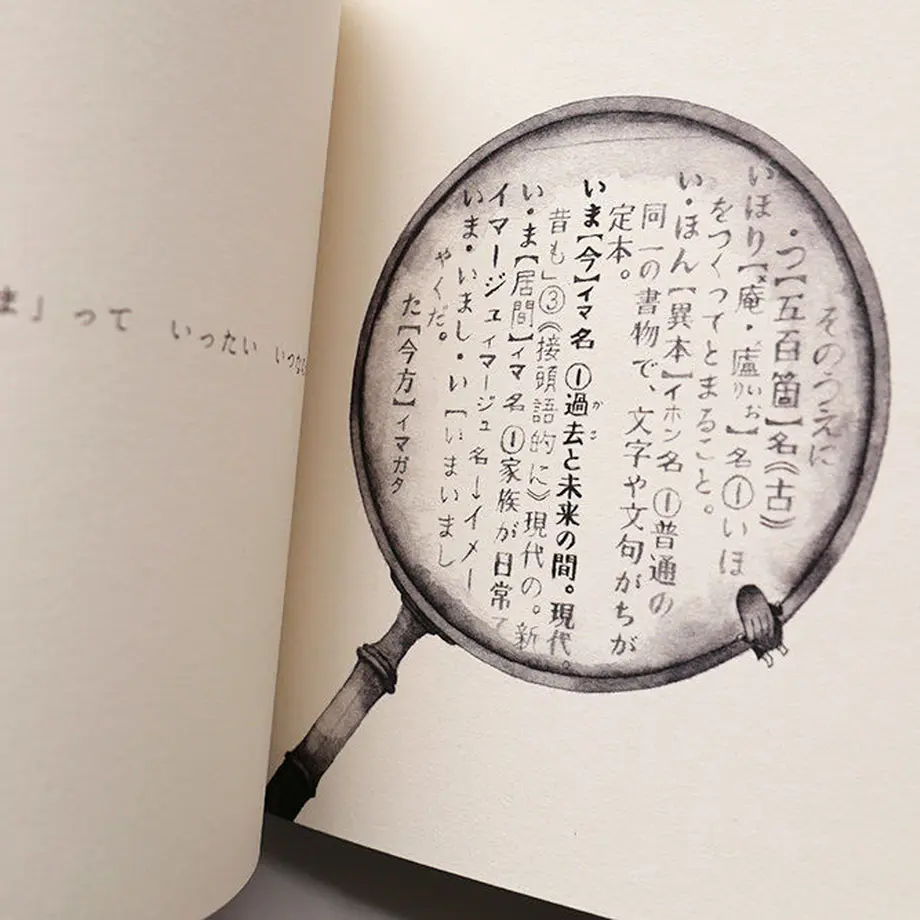 ま」って いったい いつな
そのうえに
・つ【五百箇】名《古》
いほり【庵・廬】名①いほ
をつくってとまること。
い・ほん【異本】イホン 名 ①普通の
同一の書物で、文字や文句がちが
定本。
いま【今】イマ 名 ①過去と未来の間。現代。
昔も」③《接頭語的に》現代の。新
い・ま【居間】イマ 名 ①家族が日常て
イマージュ イマージュ 名→イメー
いま・いまし・い【いまいまし
やくだ。
た【今方】イマガタ